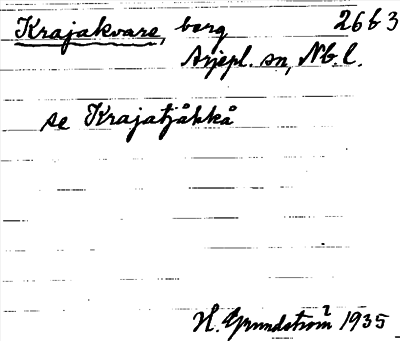 Krajakvare, berg 2663
Arjepl. sn, Nb. l.
se Krajatjåkkå
H. Grundström 1935